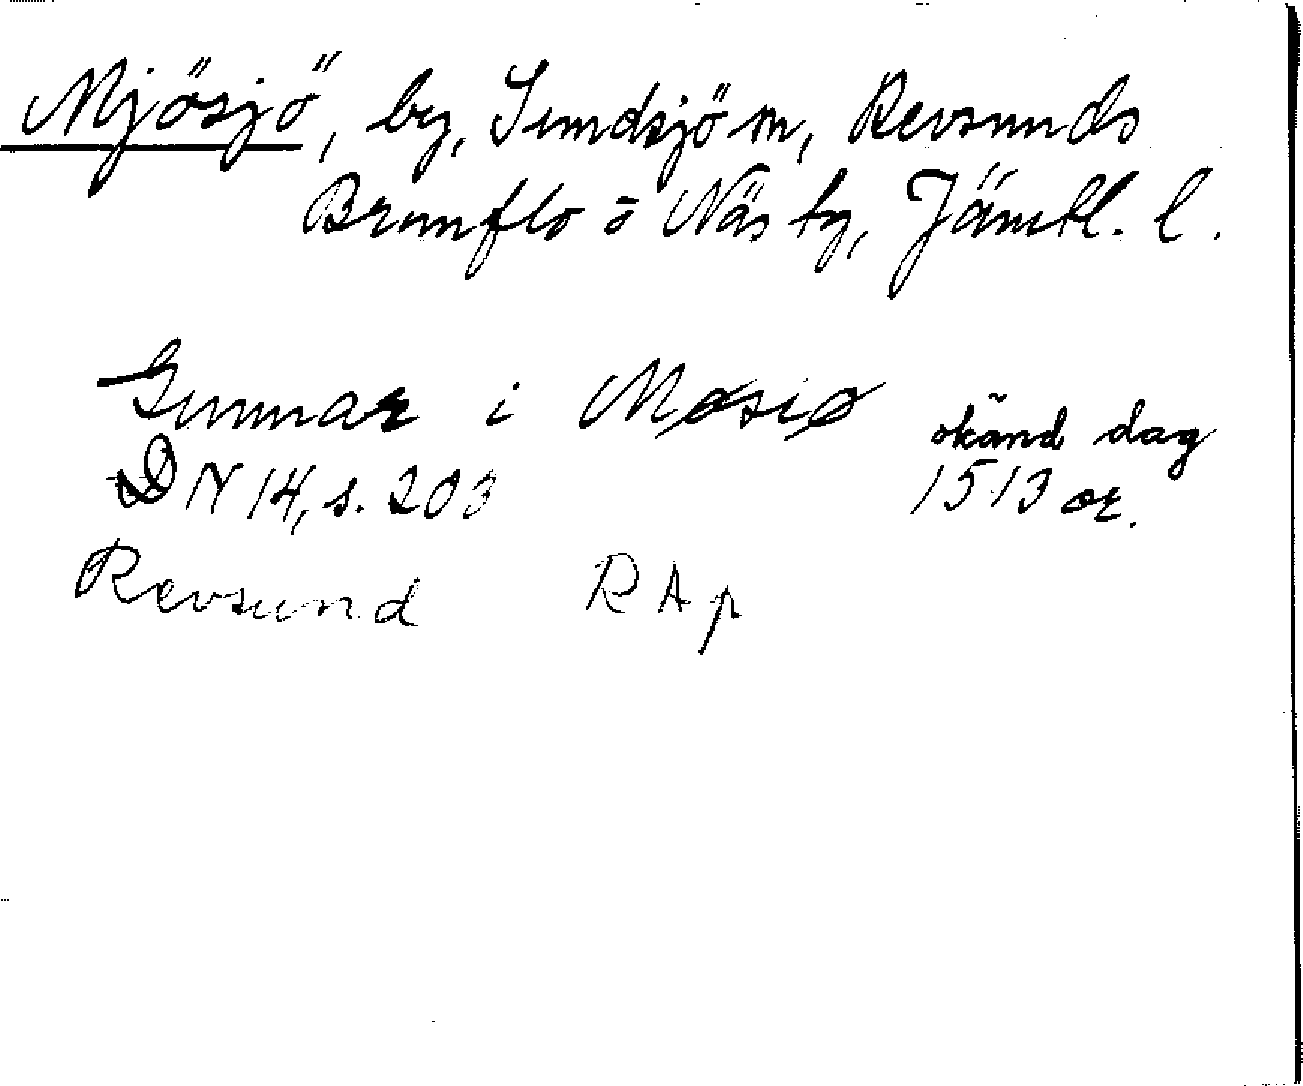 Mjösjö, by, Sundsjö sn, Revsunds
Brunflo o Näs tg, Jämtl. l.
Gunnar i Møsiø okänd dag
DN 14, s. 203 1513 or.
Revsund RAp